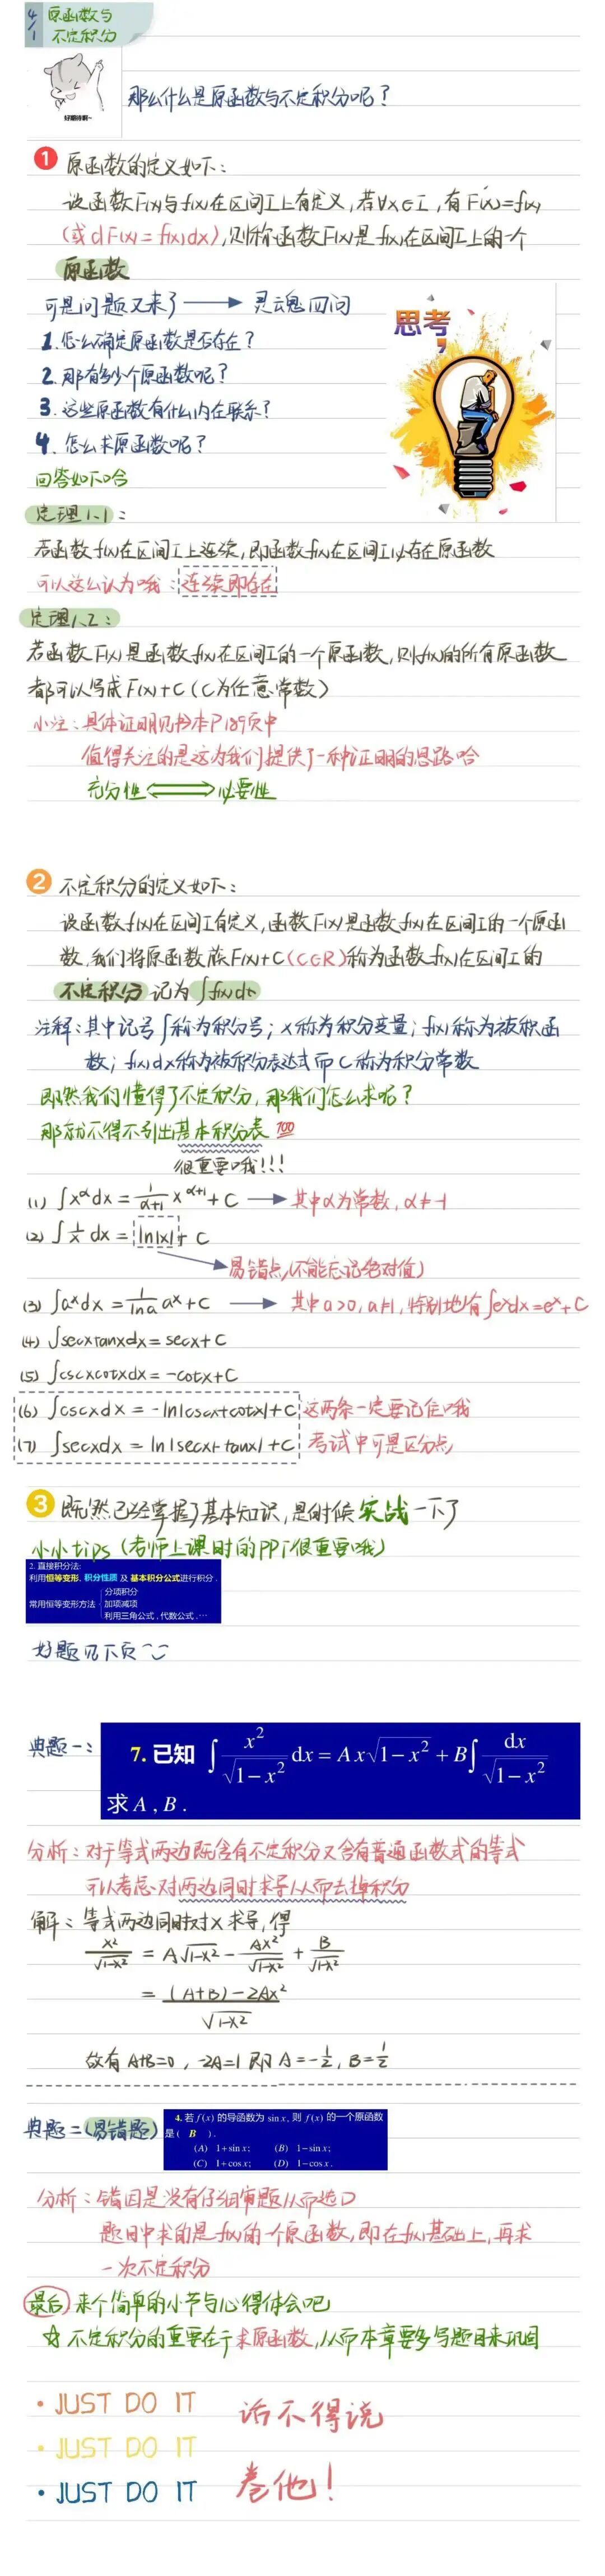 4/1
原函数与
不定积分
好期待啊~
那么什么是原函数与不定积分呢？
1 原函数的定义如下：
设函数F(x)与f(x)在区间I上有定义，若∀x∈I，有F'(x)=f(x)
(或dF(x)=f(x)dx)，则称函数F(x)是f(x)在区间I上的一个
原函数
可是问题又来了→灵魂四问
思考
1.怎么确定原函数是否存在？
2.那有多少个原函数呢？
3.这些原函数有什么内在联系？
4.怎么求原函数呢？
回答如下哈
定理1.1：
若函数f(x)在区间I上连续，则函数f(x)在区间I必存在原函数
可以这么认为哦：连续即存在
定理1.2：
若函数F(x)是函数f(x)在区间I的一个原函数，则f(x)的所有原函数
都可以写成F(x)+C（C为任意常数）
小注：具体证明见书本P189页中
值得关注的是这为我们提供了一种证明的思路哈
充分性⟺必要性
2 不定积分的定义如下：
设函数f(x)在区间I有定义，函数F(x)是函数f(x)在区间I的一个原函
数，我们将原函数族F(x)+C(C∈R)称为函数f(x)在区间I的
不定积分 记为∫f(x)dx
注解：其中记号∫称为积分号；x称为积分变量；f(x)称为被积函
数；f(x)dx称为被积分表达式而C称为积分常数
既然我们懂得了不定积分，那我们怎么求呢？
那就不得不引出基本积分表 100
很重要哦!!!
(1) ∫x^α dx = 1/(α+1) x^(α+1) + C → 其中α为常数，α≠-1
(2) ∫1/x dx = ln|x| + C
易错点(不能忘记绝对值)
(3) ∫a^x dx = 1/(ln a) a^x + C → 其中a>0，a≠1，特别地有∫e^x dx = e^x + C
(4) ∫secxtanxdx = secx + C
(5) ∫cscxcotxdx = -cotx + C
(6) ∫cscxdx = -ln|cscx+cotx| + C 这两条一定要记住哦
(7) ∫secxdx = ln|secx+tanx| + C 考试中可是区分点
3 既然已经掌握了基本知识，是时候实战一下了
小小tips（老师上课时的PPT很重要哦）
2. 直接积分法:
利用恒等变形, 积分性质 及 基本积分公式进行积分 .
常用恒等变形方法
分项积分
加项减项
利用三角公式 , 代数公式 , …
好题见下页
典题一：
7. 已知 ∫ x²/√(1−x²) dx = A x√(1−x²) + B∫ dx/√(1−x²)
求 A , B .
分析：对于等式两边既含有不定积分又含有普通函数式的等式
可以考虑对两边同时求导从而去掉积分
解：等式两边同时对x求导，得
x²/√(1-x²) = A√(1-x²) - Ax²/√(1-x²) + B/√(1-x²)
= ((A+B)-2Ax²)/√(1-x²)
故有A+B=0，-2A=1 即 A=-1/2，B=1/2
典题二(易错题)
4. 若 f(x) 的导函数为 sin x, 则 f(x) 的一个原函数
是 ( B ) .
(A) 1+sin x; (B) 1−sin x;
(C) 1+cos x; (D) 1−cos x .
分析：错因是没有仔细审题从而选D
题目中求的是f(x)的一个原函数，即在f(x)基础上，再求
一次不定积分
最后 来个简单的小节与心得体会吧
☆ 不定积分的重要在于求原函数，从而本章要多写题目来巩固
• JUST DO IT
• JUST DO IT
• JUST DO IT
话不得说
卷他！